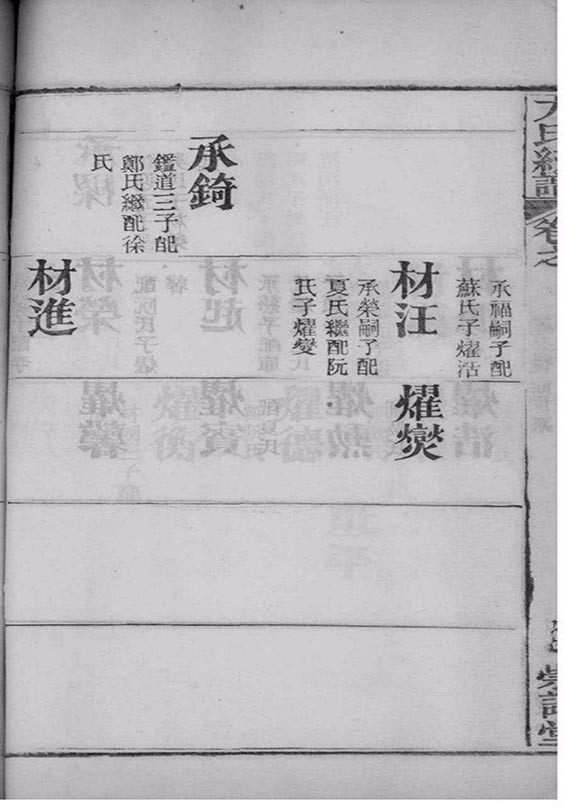 卷之
承錡
鑑道三子配
鄭氏繼配徐
氏
承福嗣子配
蘇氏子燿浩
材汪
承榮嗣子配
夏氏繼配阮
氏子燿爕
材進
燿爕